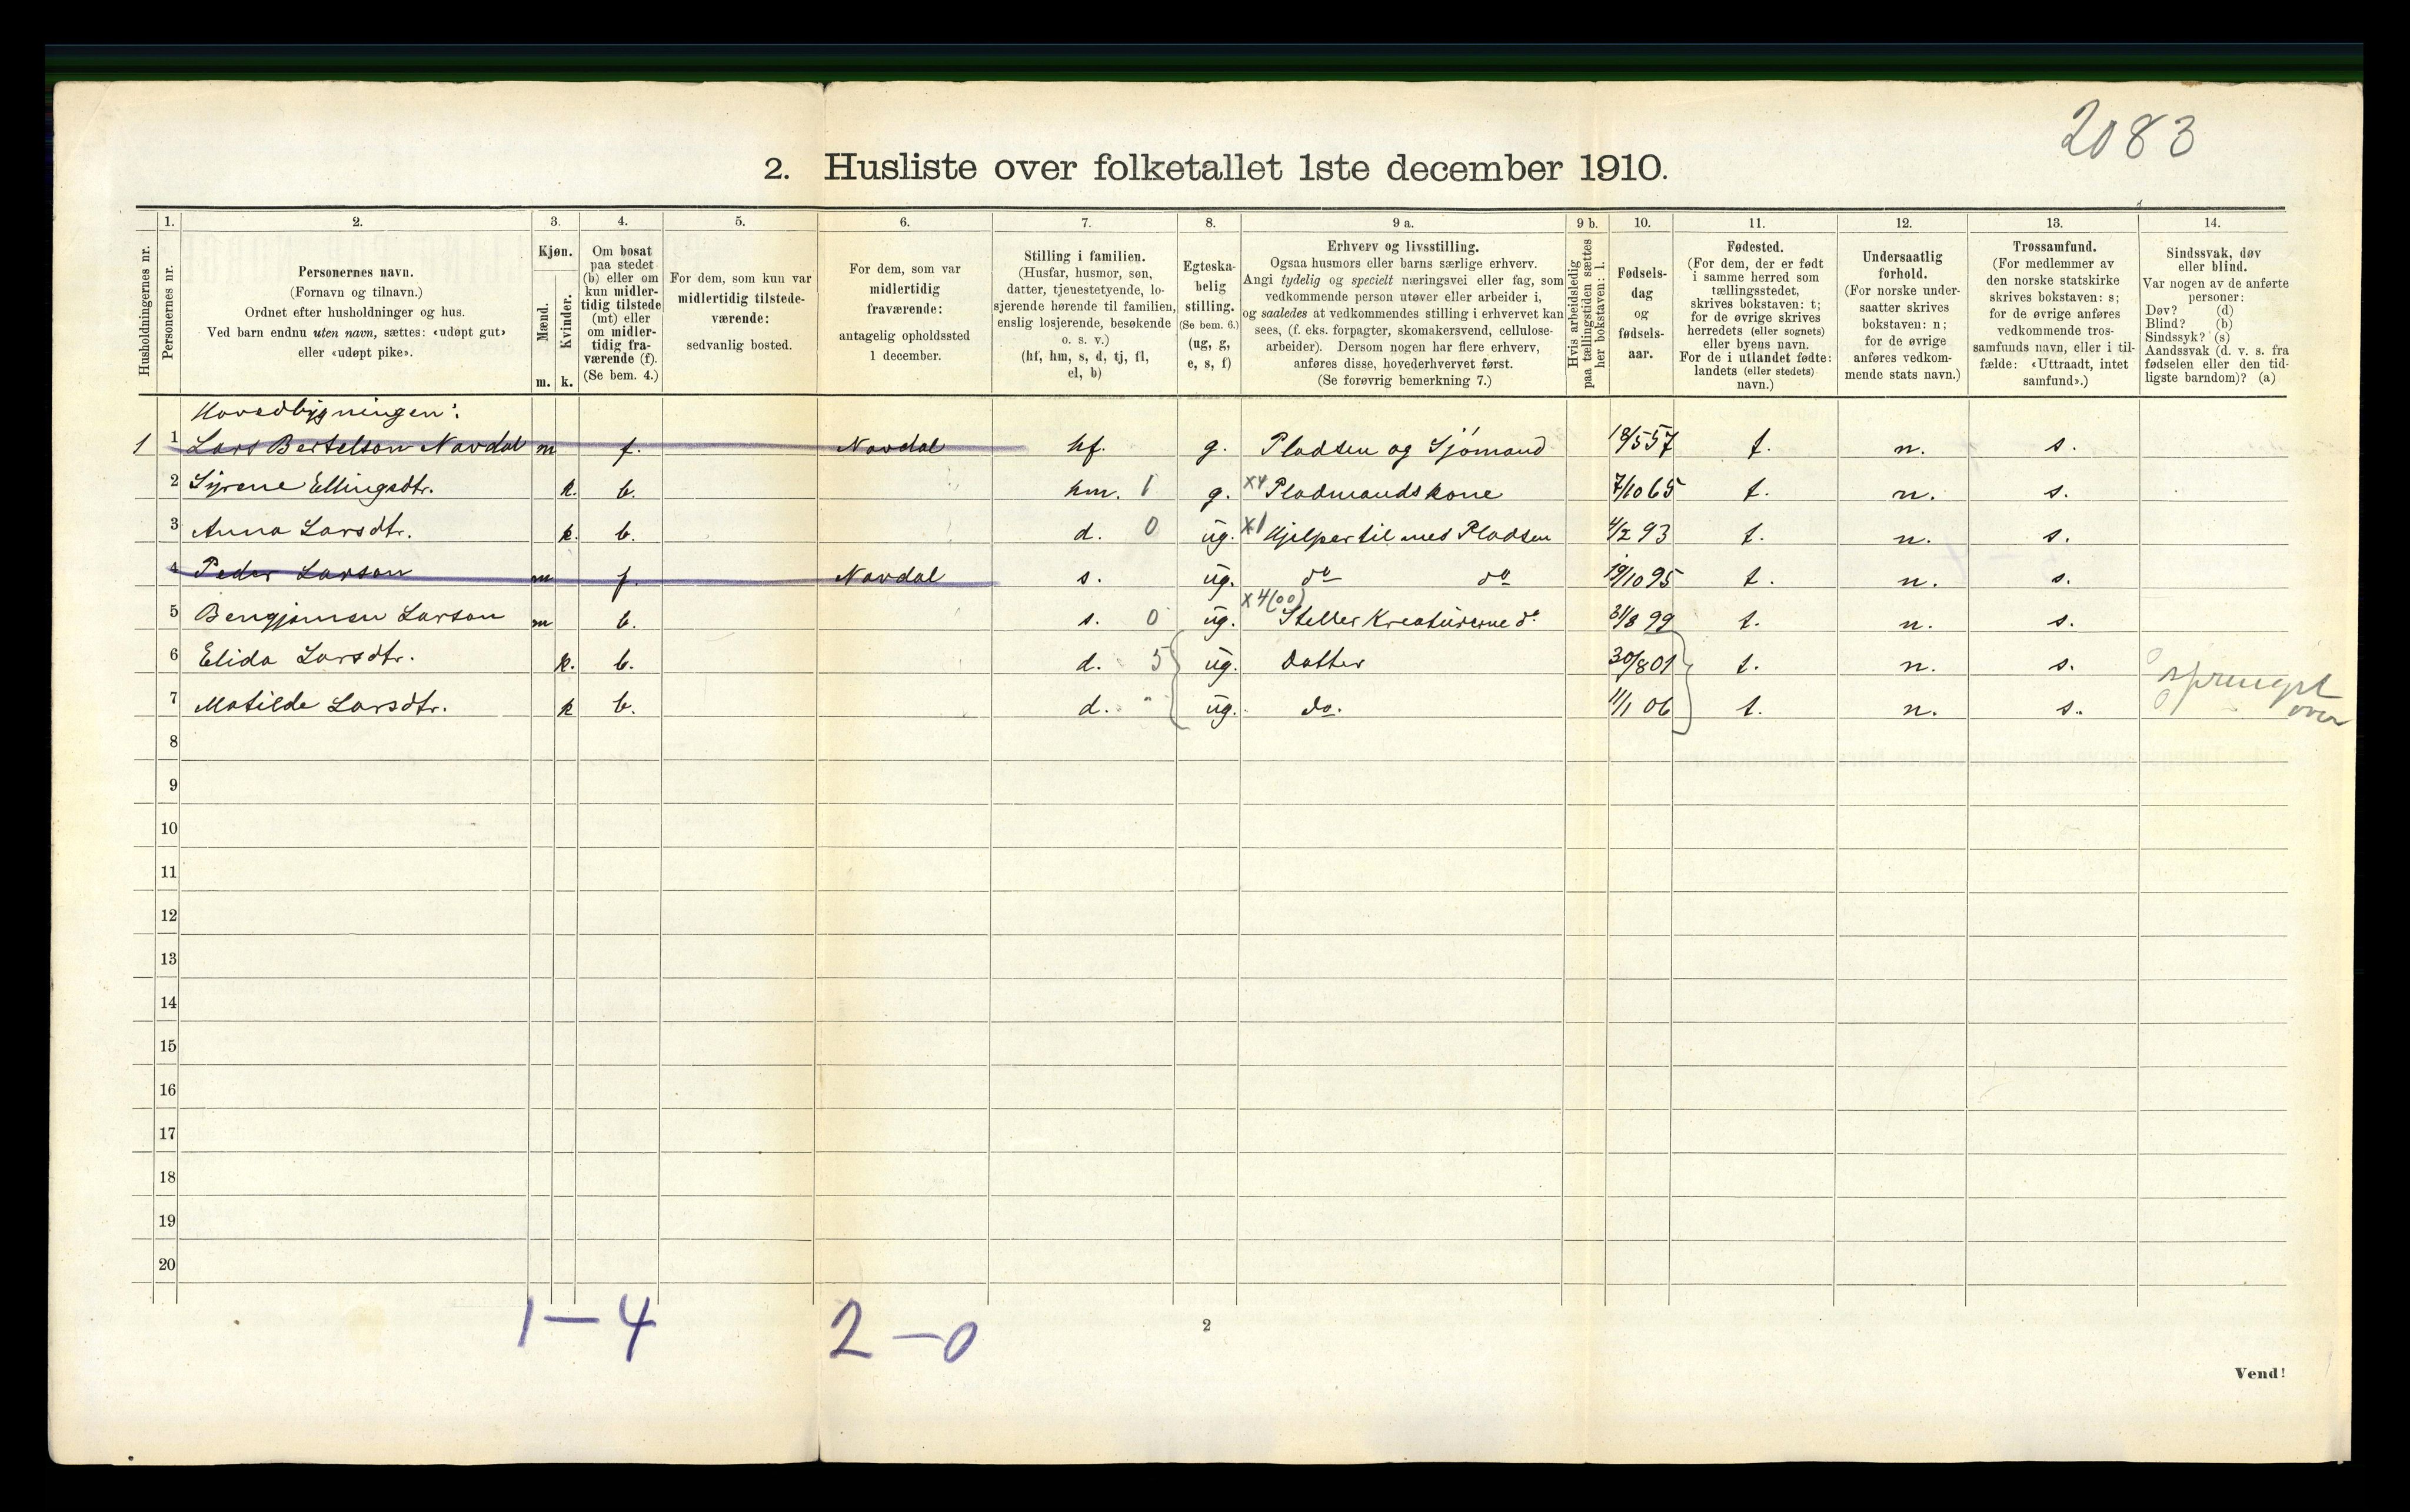 2083
2. Husliste over folketallet 1ste december 1910.
Husholdningernes nr.
1.
Personernes nr.
2.
Personernes navn.
(Fornavn og tilnavn.)
Ordnet efter husholdninger og hus.
Ved barn endnu uten navn, sættes: «udøpt gut»
eller «udøpt pike».
3.
Kjøn.
Mænd.
Kvinder.
m. k.
4.
Om bosat
paa stedet
(b) eller om
kun midler-
tidig tilstede
(mt) eller
om midler-
tidig fra-
værende (f).
(Se bem. 4.)
5.
For dem, som kun var
midlertidig tilstede-
værende:
sedvanlig bosted.
6.
For dem, som var
midlertidig
fraværende:
antagelig opholdssted
1 december.
7.
Stilling i familien.
(Husfar, husmor, søn,
datter, tjenestetyende, lo-
sjerende hørende til familien,
enslig losjerende, besøkende
o. s. v.)
(hf, hm, s, d, tj, fl,
el, b)
8.
Egteska-
belig
stilling.
(Se bem. 6.)
(ug, g,
e, s, f)
9 a.
Erhverv og livsstilling.
Ogsaa husmors eller barns særlige erhverv.
Angi tydelig og specielt næringsvei eller fag, som
vedkommende person utøver eller arbeider i,
og saaledes at vedkommendes stilling i erhvervet kan
sees, (f. eks. forpagter, skomakersvend, cellulose-
arbeider). Dersom nogen har flere erhverv,
anføres disse, hovederhvervet først.
(Se forøvrig bemerkning 7.)
9 b.
Hvis arbeidsledig
paa tællingstiden sættes
her bokstaven: l.
10.
Fødsels-
dag
og
fødsels-
aar.
11.
Fødested.
(For dem, der er født
i samme herred som
tællingsstedet,
skrives bokstaven: t;
for de øvrige skrives
herredets (eller sognets)
eller byens navn.
For de i utlandet fødte:
landets (eller stedets)
navn.)
12.
Undersaatlig
forhold.
(For norske under-
saatter skrives
bokstaven: n;
for de øvrige
anføres vedkom-
mende stats navn.)
13.
Trossamfund.
(For medlemmer av
den norske statskirke
skrives bokstaven: s;
for de øvrige anføres
vedkommende tros-
samfunds navn, eller i til-
fælde: «Uttraadt, intet
samfund».)
14.
Sindssvak, døv
eller blind.
Var nogen av de anførte
personer:
Døv? (d)
Blind? (b)
Sindssyk? (s)
Aandssvak (d. v. s. fra
fødselen eller den tid-
ligste barndom)? (a)
Hovedbygningen:
1 1 Lars Bertelson Navdal m f. Navdal hf. g. Pladsen og Sjömand 18/5 57 t. n. s.
2 Syrene Ellingsdtr. k. b. hm. 1 g. x4 Pladmandskone 7/10 65 t. n. s.
3 Anna Larsdtr. k. b. d. 0 ug. x1 Hjelper til med Pladsen 4/2 93 t. n. s.
4 Peder Larson m f. Navdal s. ug. do do 19/10 95 t. n. s.
5 Bengjamen Larson m b. s. 0 ug. x4(00) Steller Kreaturerne do 31/8 99 t. n. s.
6 Elida Larsdtr. k. b. d. 5 ug. Datter 30/8 01 t. n. s. 0 sprunget
7 Matilde Larsdtr. k b. d. " ug. do. 11/1 06 t. n. s. 0 over
8
9
10
11
12
13
14
15
16
17
18
19
20
1-4 2-0
2
Vend!